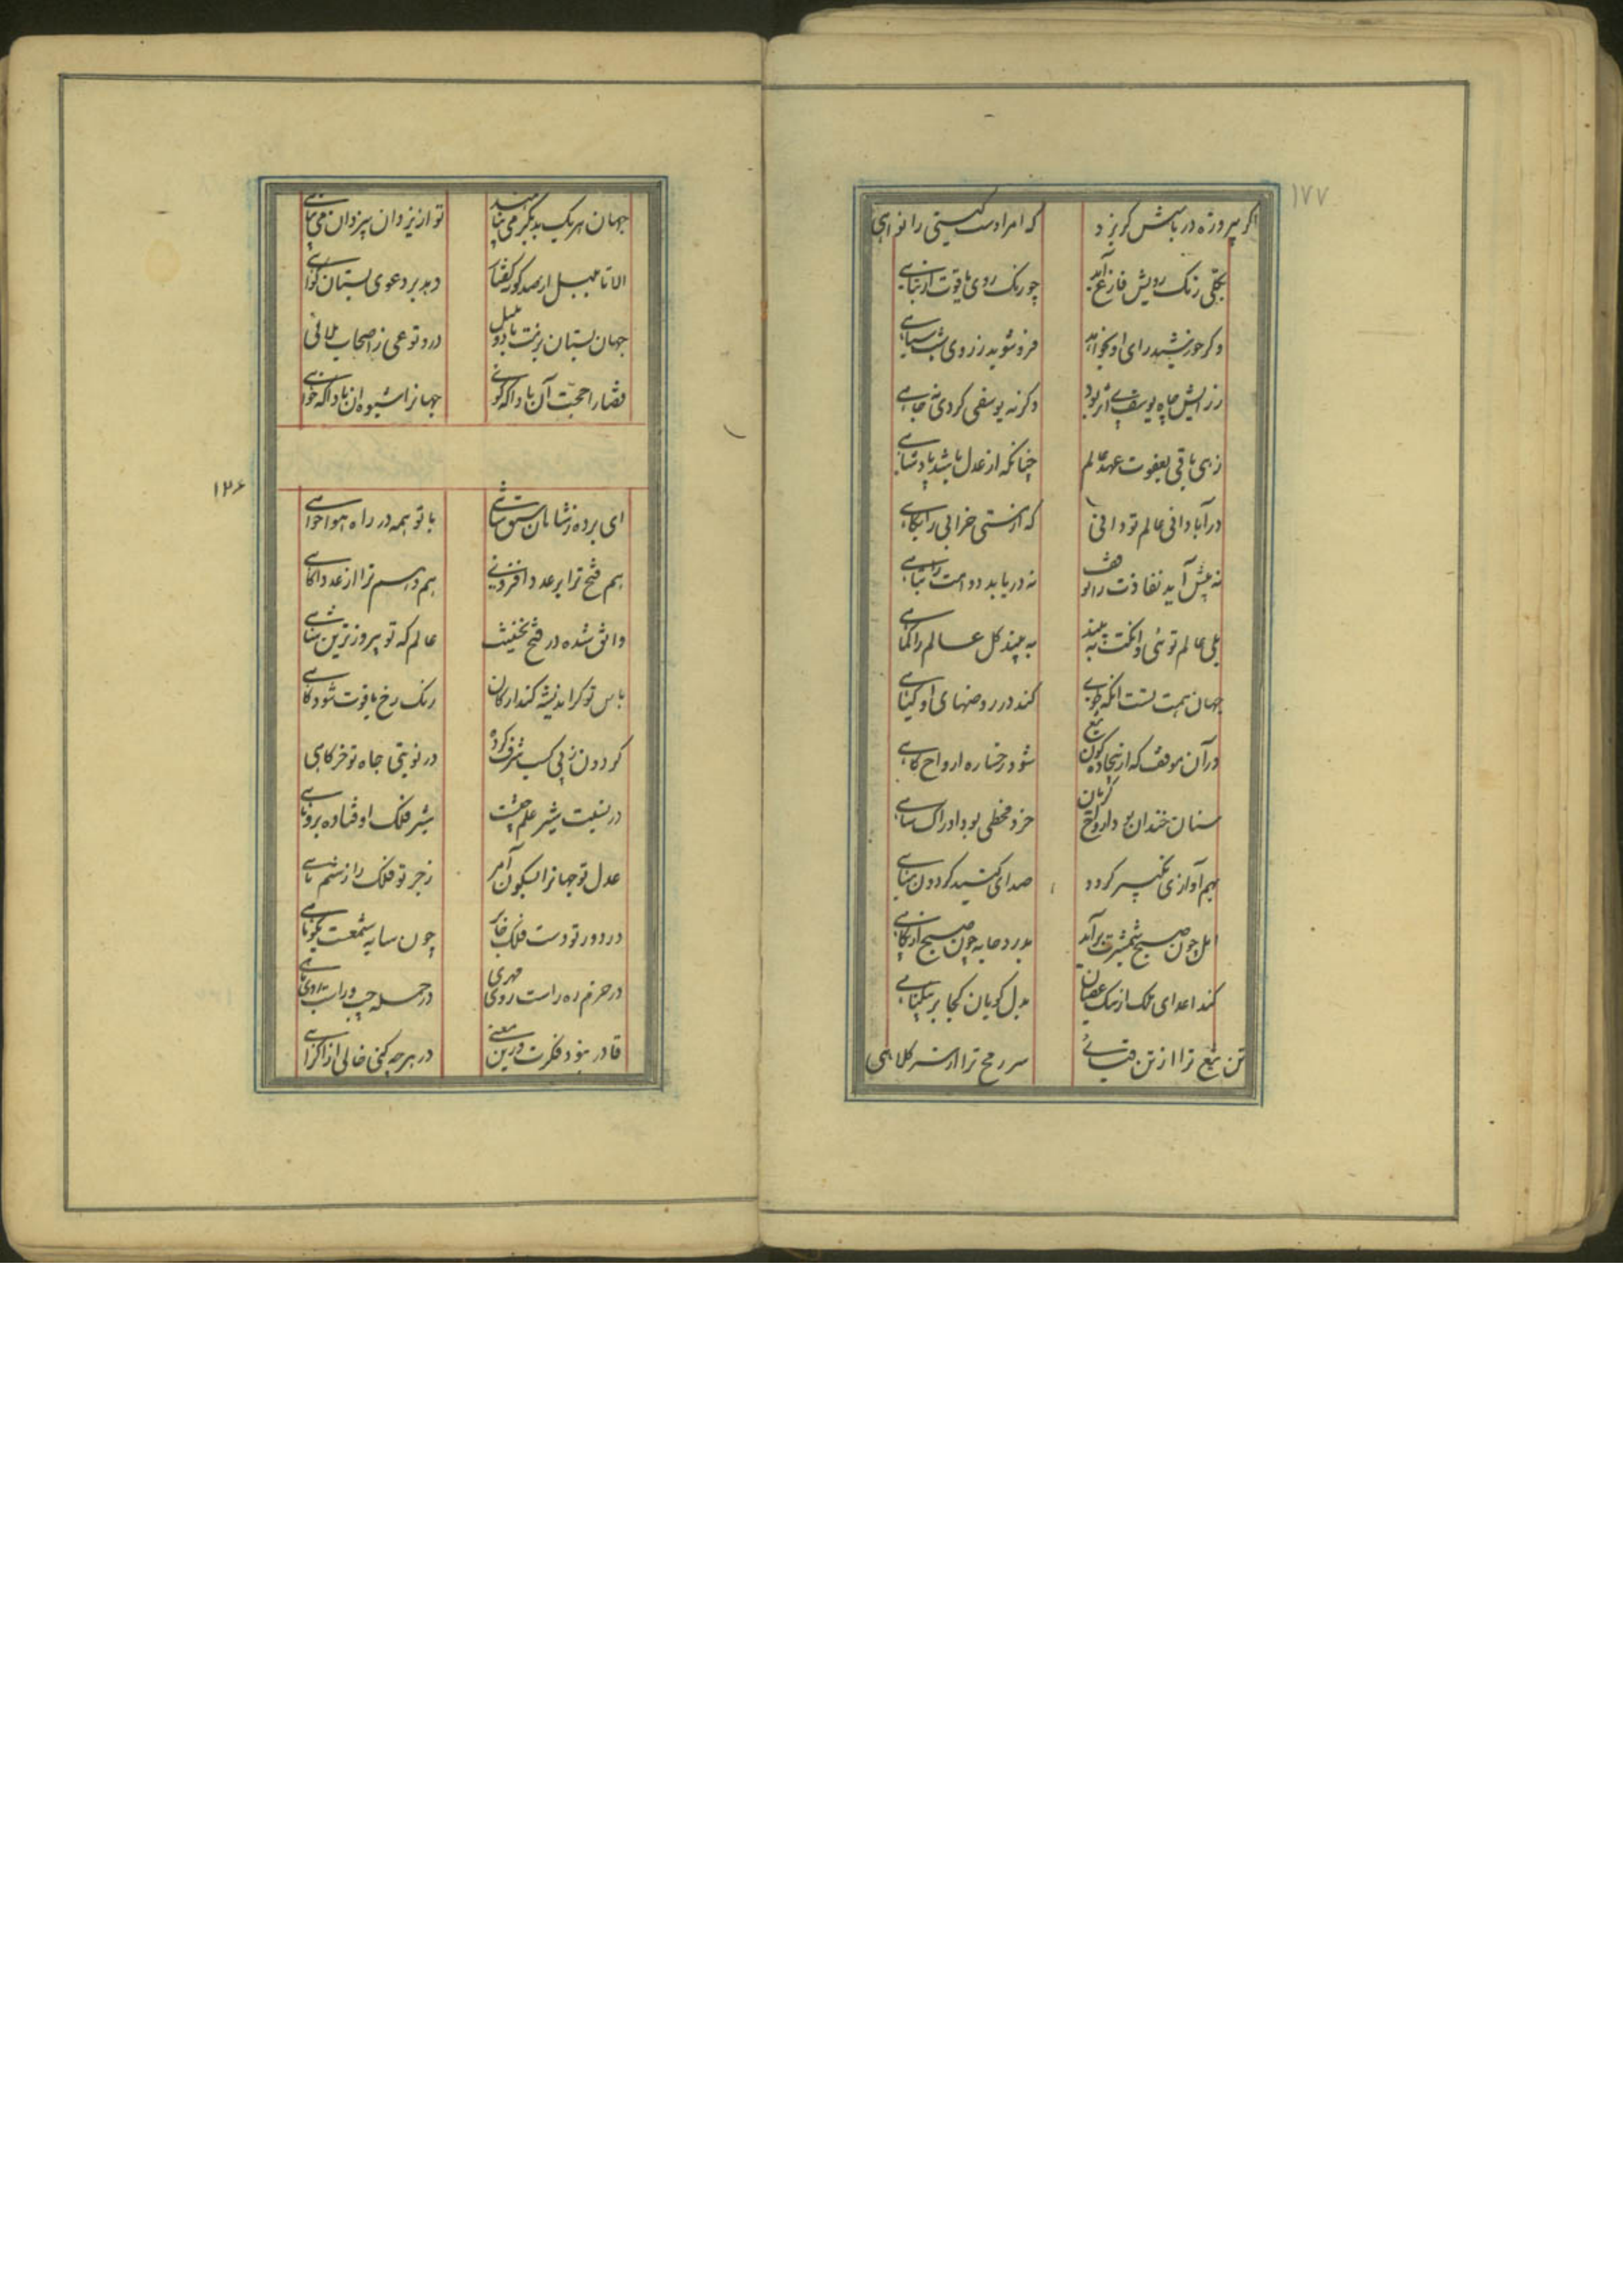 ۱۷۷
اگر پیروزه در باسش گریزد که امرا دست گیتی را نواهی
بکلی رنگ رویش فارغ آید چو رنگ روی یاقوت از تباهی
وگر خورشید رای او بخواهد فرو شوید ز روی شب سیاهی
ز رایش چاه یوسف پی اثر بود وگرنه یوسفی کردی نه چاهی
زهی باقی بعفوت عهد عالم چنانکه از عدل باشد پادشاهی
در آبادانی عالم تو دانی که از هستی خرابی را بکاهی
نه پیش آید نفاذت را توقف نه دریابد دوامت را تباهی
بلی عالم توئی وانکت به بیند به بیند کل عالم را کماهی
جهان همت تست انکه طوبی کند در روضهای او گیاهی
در آن موقف که از بیجاده گون تیغ شود رخساره ارواح کاهی
سنان خندان بود ارواح گریان خرد مخطی بود ادراک ساهی
بهم آوازی تکبیر گردد صدای گنبد گردون مباهی
اجل چون صبح شمشیرت برآید بدرد جابه چون صبح از پگاهی
کند اعدای ملک از نیک عصیان بدل گویان کجا بر بیگناهی
تن تیغ ترا از تن قبائی سر رمح ترا از سر کلاهی
جهان هر یک بدیگر می پناهند تو از یزدان بیزدان می پناهی
الا تا بلبل از صد گونه گفتار دهد بر دعوی بستان گواهی
جهان بستان بزمت باد و بلبل درو نوعی ز اصحاب ملاهی
قضا را حجت آن بادا که گوئی جهانرا شیوه آن بادا که خواهی
۱۲۶
ای برده ز شاهان سبق شاهی با تو همه در راه هواخواهی
هم فتح ترا بر عدد افزونی هم وهم ترا از عدد آگاهی
واثق شده در فتح نخستینت عالم که تو پیروزترین شاهی
باس تو گر اندیشه کند در کان رنگ رخ یاقوت شود کاهی
گردون ز پی کسب شرف کرده در نوبتی جاه تو خرگاهی
در نسبت شیر علم جیشت شیر فلک اوفتاده بروباهی
عدل تو جهانرا بسکون آمر زجر تو فلک را ز ستم ناهی
در دور تو دست فلک جائر چون سایه شمعست بکوتاهی
در حزم ره راست روی مهری در حمله چپ و راست روی ماهی
قادر نبود فکرت درین معنی در هرچه کنی خالی از اکراهی